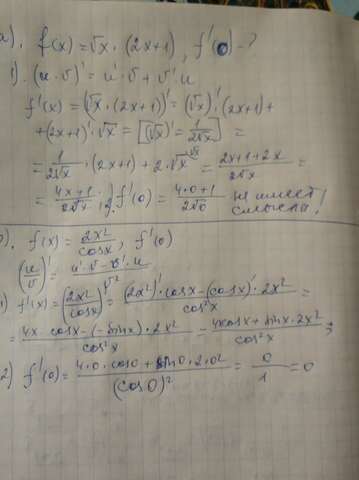 а). f(x) = √x · (2x+1), f'(0) - ?
1). (u·v)' = u'·v + v'·u
f'(x) = (√x · (2x+1))' = (√x)' · (2x+1) +
+ (2x+1)' · √x = [(√x)' = 1/(2√x)] =
= 1/(2√x) · (2x+1) + 2·√x^√x = (2x+1+2x)/(2√x) =
= (4x+1)/(2√x); 2. f'(0) = (4·0+1)/(2√0) не имеет смысла!
f(x) = 2x²/cosx, f'(0)
(u/v)' = (u'·v - v'·u)/v²
1) f'(x) = (2x²/cosx)' = ((2x²)'·cosx - (cosx)'·2x²)/cos²x =
= (4x·cosx - (-sinx)·2x²)/cos²x = (4xcosx + sinx·2x²)/cos²x;
2) f'(0) = (4·0·cos0 + sin0·2·0²)/(cos0)² = 0/1 = 0